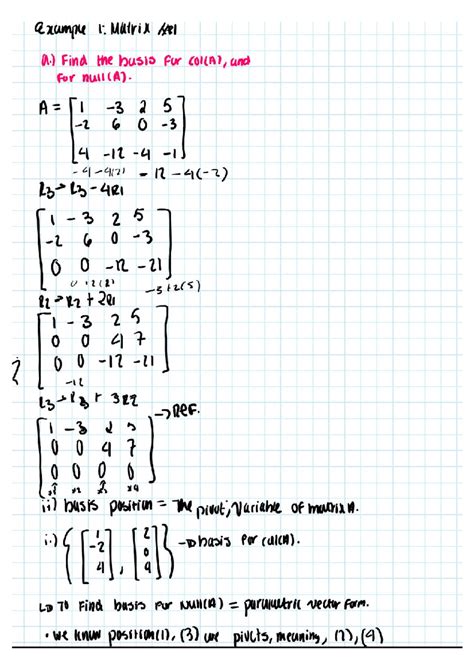 Example 1: Matrix
a.) Find the basis for col(A), and
for null(A).
A = [1 -3 2 5
-2 6 0 -3
4 -12 -4 -1]
-4-4(2) -12-4(-2)
R3→R3-4R1
[1 -3 2 5
-2 6 0 -3
0 0 -12 -21]
0+2(2) -3+2(5)
R2→R2+2R1
[1 -3 2 5
0 0 4 7
0 0 -12 -21]
-12
R3→R3+3R2
[1 -3 2 5
0 0 4 7
0 0 0 0] →REF.
x1 x2 x3 x4
ii) basis position = The pivot, variable of matrix A.
i.) {[1 -2 4], [2 0 4]} → basis for col(A).
↳ To Find basis for Null(A) = parametric vector form.
• we know position(1), (3) are pivots, meaning, (2), (4)